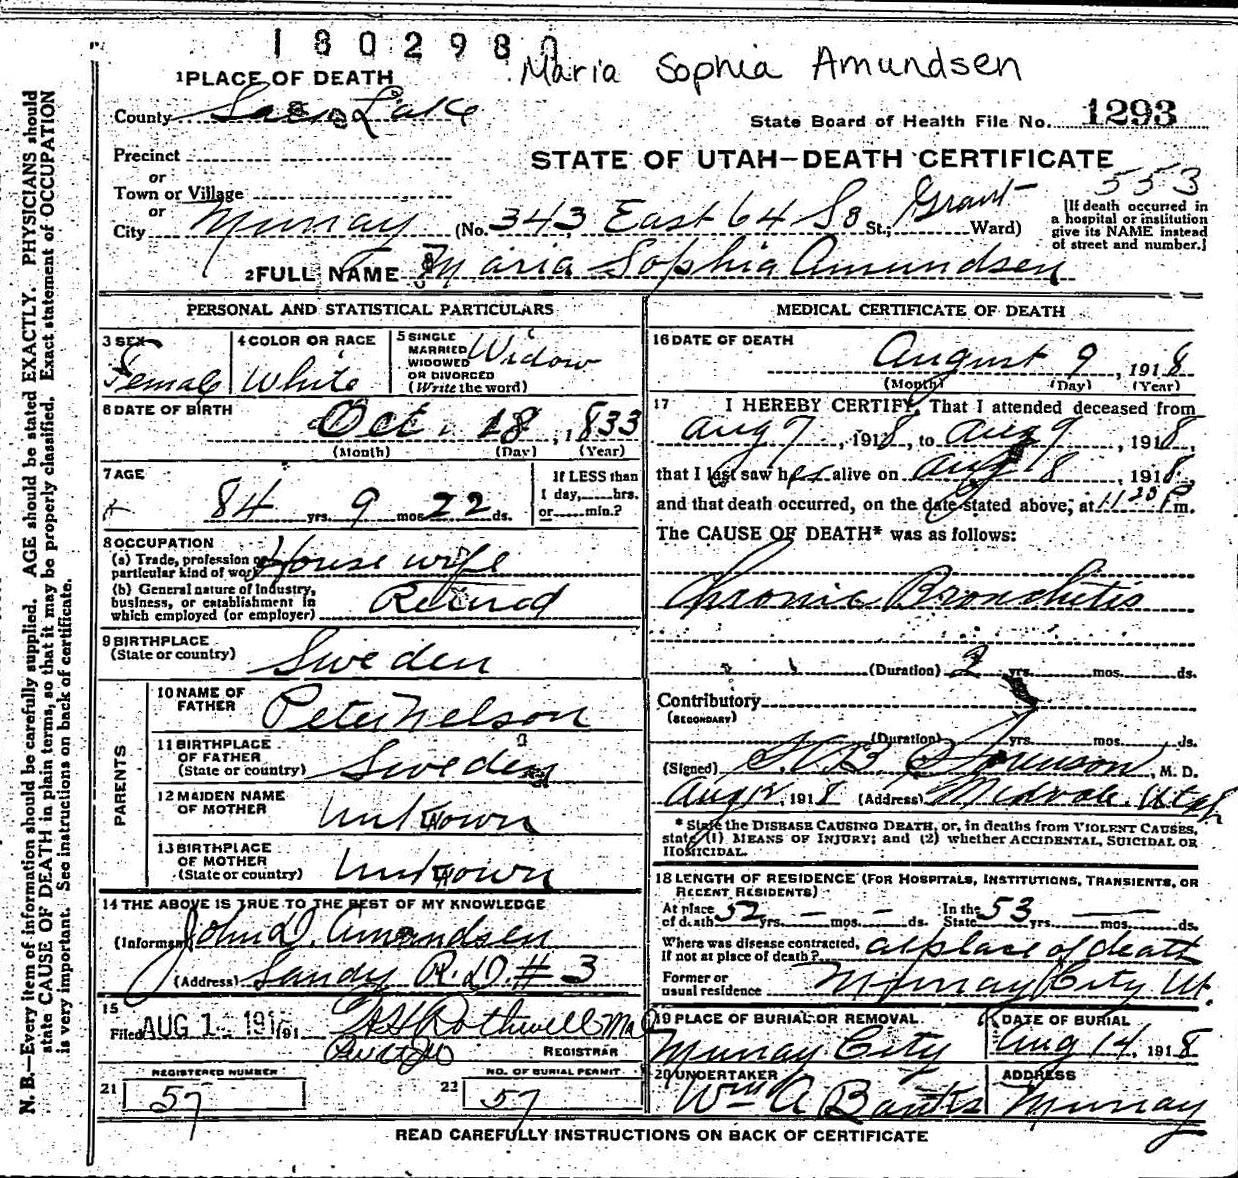 1802980
Maria Sophia Amundsen
1 PLACE OF DEATH
County Salt Lake
State Board of Health File No. 1293
Precinct
STATE OF UTAH—DEATH CERTIFICATE
or
Town or Village
553
or
City Murray (No. 343 East 64 So St.; Grant Ward)
[If death occurred in a hospital or institution give its NAME instead of street and number.]
2 FULL NAME Maria Sophia Amundsen
PERSONAL AND STATISTICAL PARTICULARS
3 SEX Female
4 COLOR OR RACE White
5 SINGLE MARRIED WIDOWED OR DIVORCED (Write the word) Widow
6 DATE OF BIRTH Oct. 18, 1833
(Month) (Day) (Year)
7 AGE
84 yrs. 9 mos. 22 ds.
If LESS than 1 day, hrs. or min.?
8 OCCUPATION
(a) Trade, profession or particular kind of work House wife
(b) General nature of Industry, business, or establishment in which employed (or employer) Retired
9 BIRTHPLACE (State or country) Sweden
PARENTS
10 NAME OF FATHER Peter Nelson
11 BIRTHPLACE OF FATHER (State or country) Sweden
12 MAIDEN NAME OF MOTHER Unknown
13 BIRTHPLACE OF MOTHER (State or country) Unknown
14 THE ABOVE IS TRUE TO THE BEST OF MY KNOWLEDGE
(Informant) John D. Amundsen
(Address) Sandy R.D. # 3
15
Filed AUG 1 191 Rothwell
REGISTRAR
REGISTERED NUMBER
NO. OF BURIAL PERMIT
21 57 22 57
MEDICAL CERTIFICATE OF DEATH
16 DATE OF DEATH
August 9, 1918
(Month) (Day) (Year)
17 I HEREBY CERTIFY, That I attended deceased from
Aug 7, 1918, to Aug 9, 1918,
that I last saw her alive on Aug 8, 1918,
and that death occurred, on the date stated above, at 11 25 P m.
The CAUSE OF DEATH* was as follows:
Chronic Bronchitis
(Duration) 2 yrs. mos. ds.
Contributory (SECONDARY)
(Duration) yrs. mos. ds.
(Signed) Sorenson, M. D.
Aug 12, 1918 (Address) Midvale Utah
* State the DISEASE CAUSING DEATH, or, in deaths from VIOLENT CAUSES, state (1) MEANS OF INJURY; and (2) whether ACCIDENTAL, SUICIDAL OR HOMICIDAL.
18 LENGTH OF RESIDENCE (FOR HOSPITALS, INSTITUTIONS, TRANSIENTS, OR RECENT RESIDENTS)
At place of death 52 yrs. — mos. — ds. In the State 53 yrs. — mos. ds.
Where was disease contracted, if not at place of death? at place of death
Former or usual residence Murray City Ut.
19 PLACE OF BURIAL OR REMOVAL Murray City
DATE OF BURIAL Aug 14, 1918
20 UNDERTAKER Wm A
ADDRESS Murray
READ CAREFULLY INSTRUCTIONS ON BACK OF CERTIFICATE
N. B.—Every item of information should be carefully supplied. AGE should be stated EXACTLY. PHYSICIANS should
state CAUSE OF DEATH in plain terms, so that it may be properly classified. Exact statement of OCCUPATION
is very important. See instructions on back of certificate.